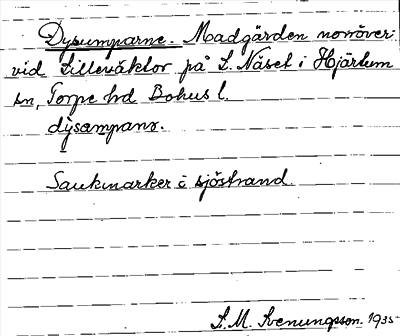 Dysumparne. Madgärden norröver
vid Lilleväktor på L. Näset i Hjärtum
sn, Torpe hd Bohus l.
dysampanɘ.
Sankmarker i sjöstrand.
S. M. Svenungsson. 1935